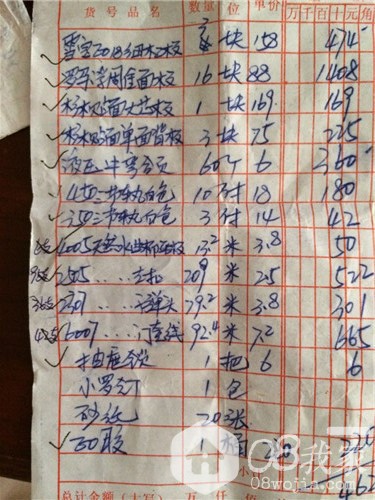 货号品名 数量 单位 单价 万千百十元角
雪宝2018细木板 3 块 158 474
16 块 88 1408
杉木贴面大芯板 1 块 169 169
杉木贴面单面背板 3 块 75 225
液压 60个 6 360
450三节 白色 10付 18 180
350三节 白色 3付 14 42
4005 13.2米 3.8 50
2515 209米 2.5 522
2307 79.2米 3.8 301
6007 92.4米 7.2 665
抽屉锁 1把 6 6
小罗钉 1包
砂纸 20张
白胶 1桶
总计金额(大写) 万 仟 佰
08我家
08wojia.com